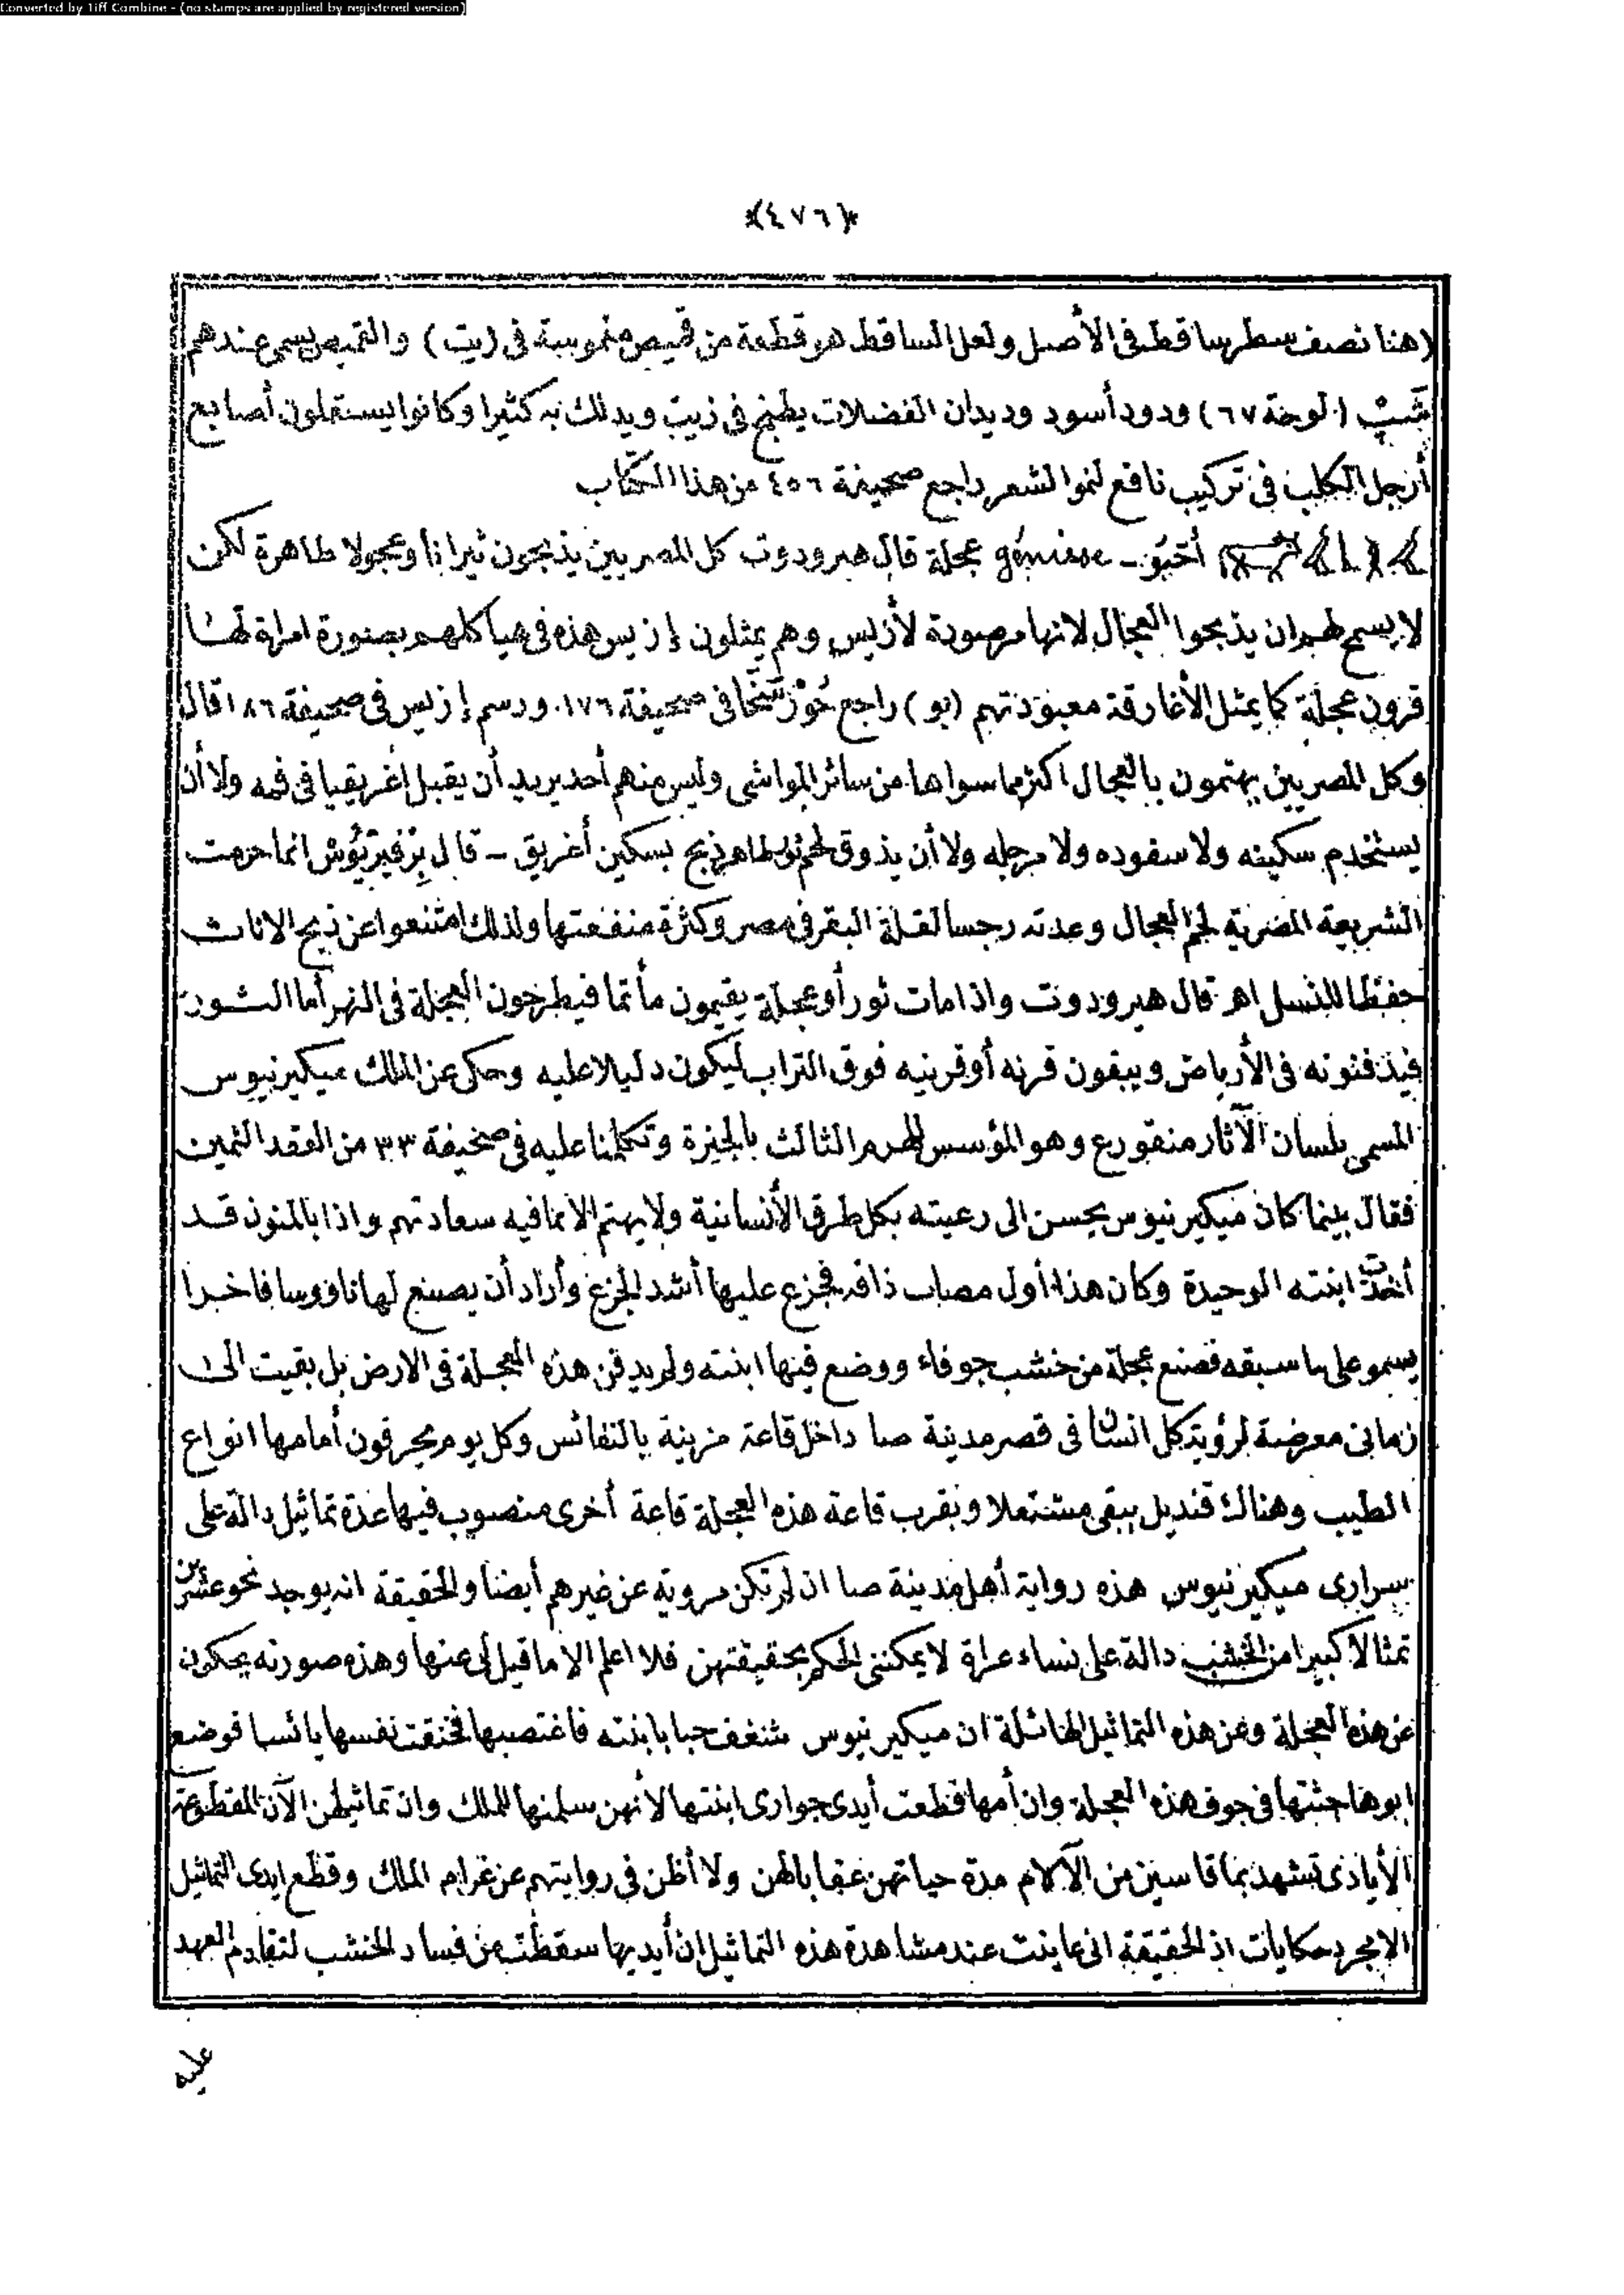 Converted by Tiff Combine - (no stamps are applied by registered version)
*(٤٧٦)*
(هنا نصف سطر ساقط فى الأصل ولعل الساقط هو قطعة من قميص مغموسة فى زيت) والقميص يسمى عندهم
(لوحة ٦٧) ودود أسود وديدان الفضلات يطبخ فى زيت ويدلك به كثيرا وكانوا يستعملون أصابع
أرجل الكلب فى تركيب نافع لنمو الشعر راجع صحيفة ٤٥٦ من هذا الكتاب
génisse عجلة قال هيرودوت كل المصريين يذبحون ثيرانا وعجولا طاهرة لكن
لا يسمح لهم ان يذبحوا العجال لانها مرصودة لأزيس وهم يمثلون إزيس هذه فى هياكلهم بصورة امرأة لها
قرون عجلة كما يمثل الأغارقة معبودتهم (يو) راجع فى صحيفة ١٧٦ ورسم إزيس فى صحيفة ١٨٦ قال
وكل المصريين يهتمون بالعجال اكثر مما سواها من سائر المواشى وليس منهم أحد يريد أن يقبل إغريقيا فى فمه ولا أن
يستخدم سكينه ولا سفوده ولا مرجله ولا أن يذوق لحم ثور طاهر ذبح بسكين أغريق - قال انما حرمت
الشريعة المصرية لحم العجال وعدته رجسا لقلة البقر فى مصر وكثرة منفعتها ولذلك امتنعوا عن ذبح الاناث
حفظا للنسل اهـ قال هيرودوت واذا مات ثور أو عجلة يقيمون مأتما فيطرحون العجلة فى النهر أما الثور
فيدفنونه فى الأرباض ويبقون قرنه أو قرنيه فوق التراب ليكون دليلا عليه وحكى عن الملك ميكيرنيوس
المسمى بلسان الآثار منقورع وهو المؤسس للهرم الثالث بالجيزة وتكلمنا عليه فى صحيفة ٣٣ من العقد الثمين
فقال بينما كان ميكيرنيوس يحسن الى رعيته بكل طرق الأنسانية ولا يهتم الا بما فيه سعادتهم واذا بالمنون قد
أخذت ابنته الوحيدة وكان هذا أول مصاب ذاقه فجزع عليها أشد الجزع وأراد أن يصنع لها ناووسا فاخرا
يسمو على ما سبقه فصنع عجلة من خشب جوفاء ووضع فيها ابنته ولم يدفن هذه العجلة فى الارض بل بقيت الى
زمانى معرضة لرؤية كل انسان فى قصر مدينة صا داخل قاعة مزينة بالنفائس وكل يوم يحرقون أمامها انواع
الطيب وهناك قنديل يبقى مشتعلا وبقرب قاعة هذه العجلة قاعة أخرى منصوب فيها عدة تماثيل دالة على
سرارى ميكيرنيوس هذه رواية أهل مدينة صا ان لم تكن مروية عن غيرهم أيضا والحقيقة انه يوجد نحو عشرين
تمثالا كبيرا من الخشب دالة على نساء عراة لا يمكننى الحكم بحقيقتهن فلا اعلم الا ما قيل لى عنها وهذه صورته يحكون
عن هذه العجلة وعن هذه التماثيل الهائلة ان ميكيرنيوس شغف حبا بابنته فاغتصبها فخنقت نفسها يائسا فوضع
ابوها جثتها فى جوف هذه العجلة وان أمها قطعت أيدى جوارى ابنتها لأنهن سلمنها للملك وان تماثيلهن الآن المقطوعة
الأيادى تشهد بما قاسين من الآلام مدة حياتهن عقابا لهن ولا أظن فى روايتهم عن غرام الملك وقطع ايدى التماثيل
الا مجرد حكايات اذ الحقيقة انى عاينت عند مشاهدة هذه التماثيل ان أيديها سقطت من فساد الخشب لتقادم العهد
عليه